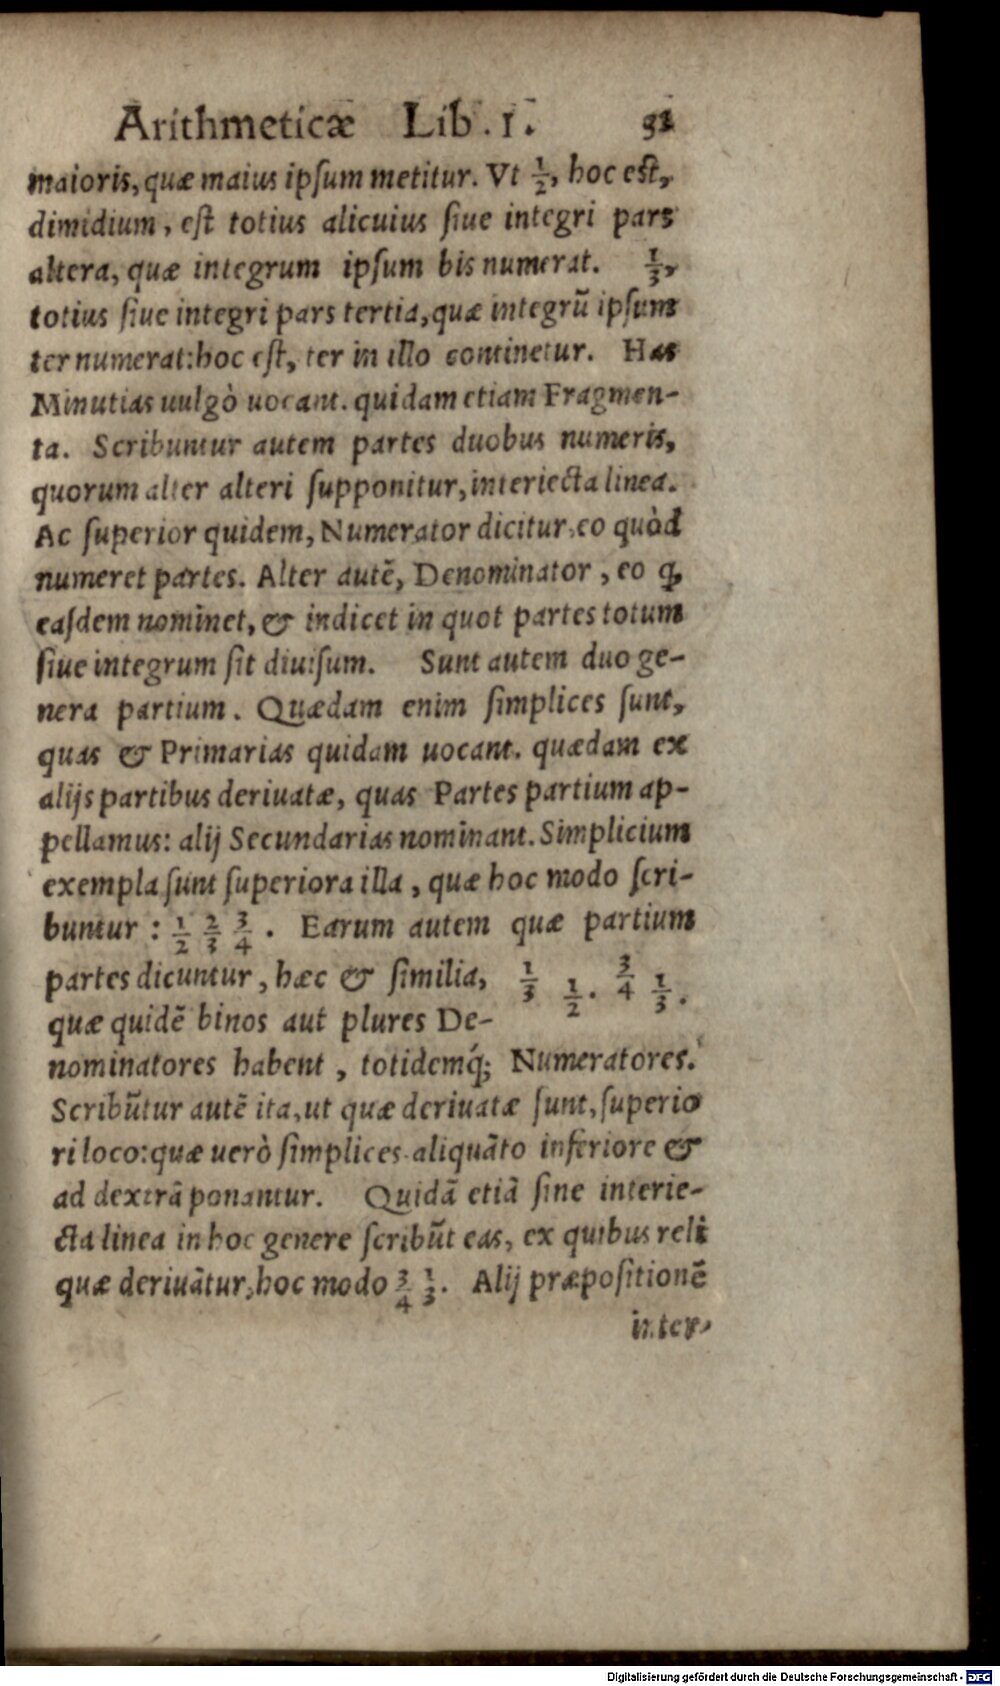 Arithmeticæ Lib. I. 51
maioris, quæ maius ipſum metitur. Vt 1/2, hoc eſt,
dimidium, eſt totius alicuius ſiue integri pars
altera, quæ integrum ipſum bis numerat. 1/3,
totius ſiue integri pars tertia, quæ integrū ipſum
ter numerat: hoc eſt, ter in illo continetur. Has
Minutias uulgò uocant. quidam etiam Fragmen-
ta. Scribuntur autem partes duobus numeris,
quorum alter alteri ſupponitur, interiecta linea.
Ac ſuperior quidem, Numerator dicitur, eo quòd
numeret partes. Alter autē, Denominator, eo ꝙ
eaſdem nominet, & indicet in quot partes totum
ſiue integrum ſit diuiſum. Sunt autem duo ge-
nera partium. Quædam enim ſimplices ſunt,
quas & Primarias quidam uocant. quædam ex
alijs partibus deriuatæ, quas Partes partium ap-
pellamus: alij Secundarias nominant. Simplicium
exempla ſunt ſuperiora illa, quæ hoc modo ſcri-
buntur: 1/2 2/3 3/4. Earum autem quæ partium
partes dicuntur, hæc & ſimilia, 1/3 1/2. 3/4 1/3.
quæ quidē binos aut plures De-
nominatores habent, totidemq́; Numeratores.
Scribūtur autē ita, ut quæ deriuatæ ſunt, ſuperio
ri loco: quæ uerò ſimplices aliquāto inferiore &
ad dextrā ponantur. Quidā etiā ſine interie-
cta linea in hoc genere ſcribūt eas, ex quibus reli
quæ deriuātur, hoc modo 3/4 1/3. Alij præpoſitionē
inter-
Digitalisierung gefördert durch die Deutsche Forschungsgemeinschaft - DFG